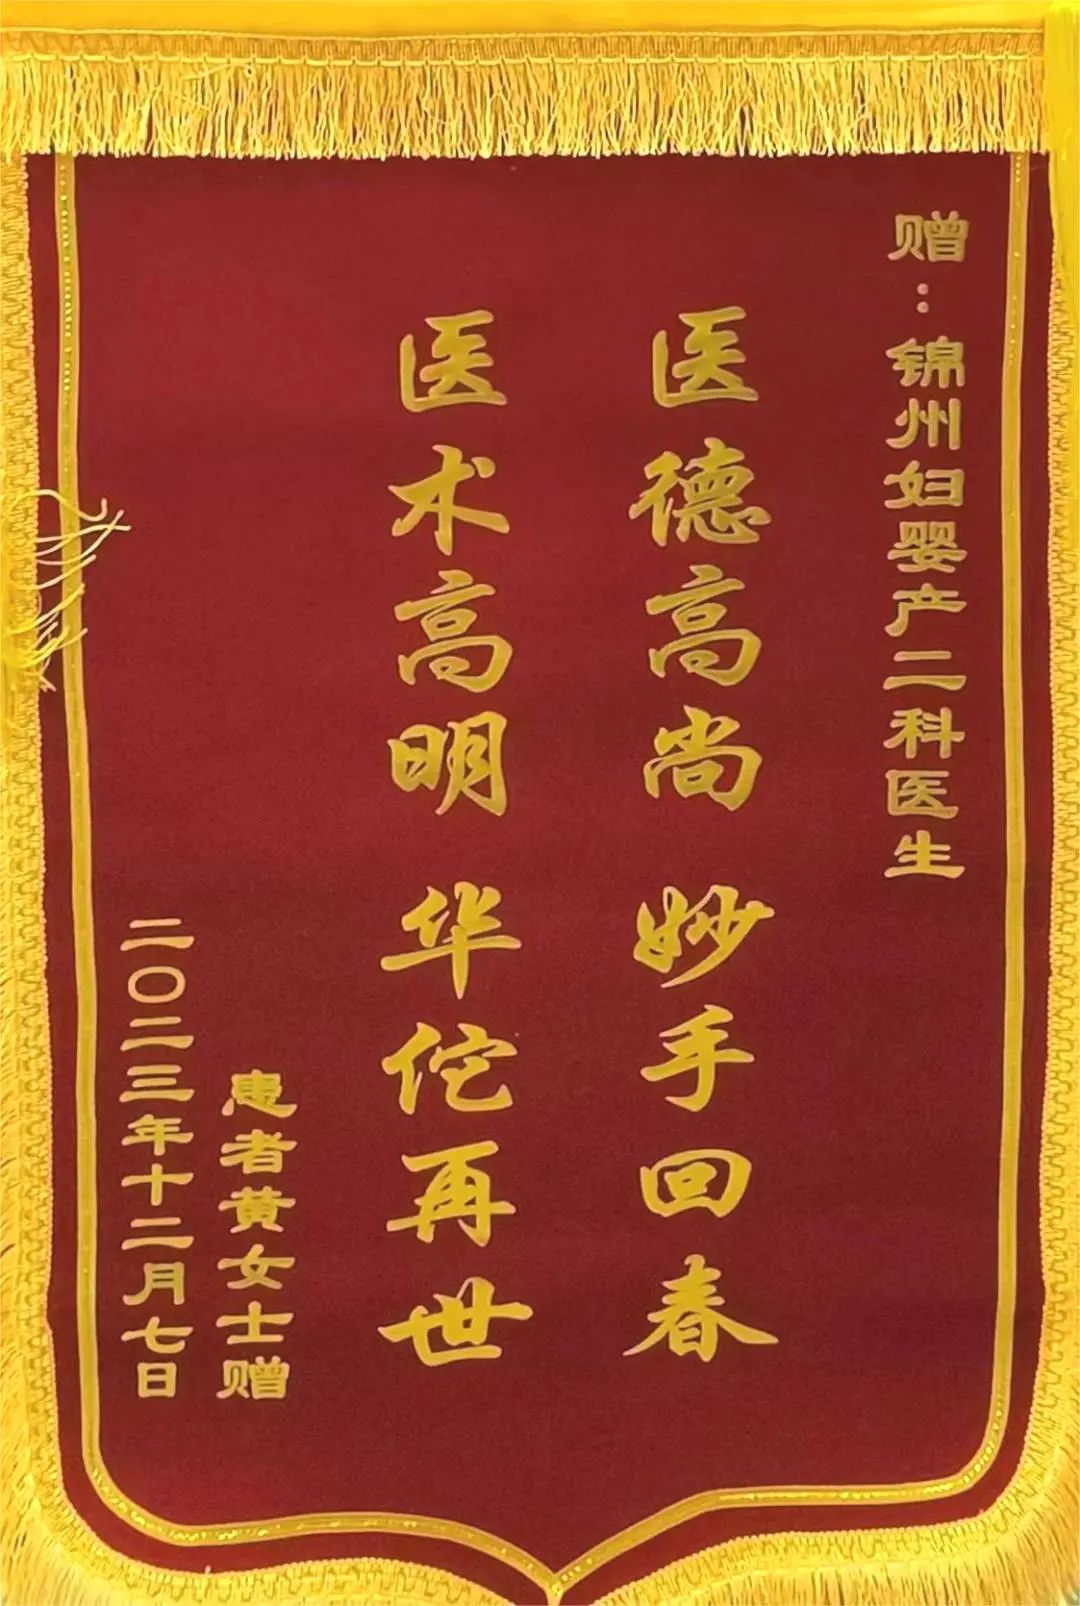 赠：锦州妇婴产二科医生
医德高尚 妙手回春
医术高明 华佗再世
患者黄女士赠
二〇二三年十二月七日